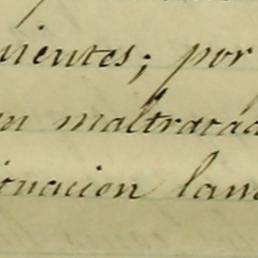 nientes; por
n maltratad
tuacion lam